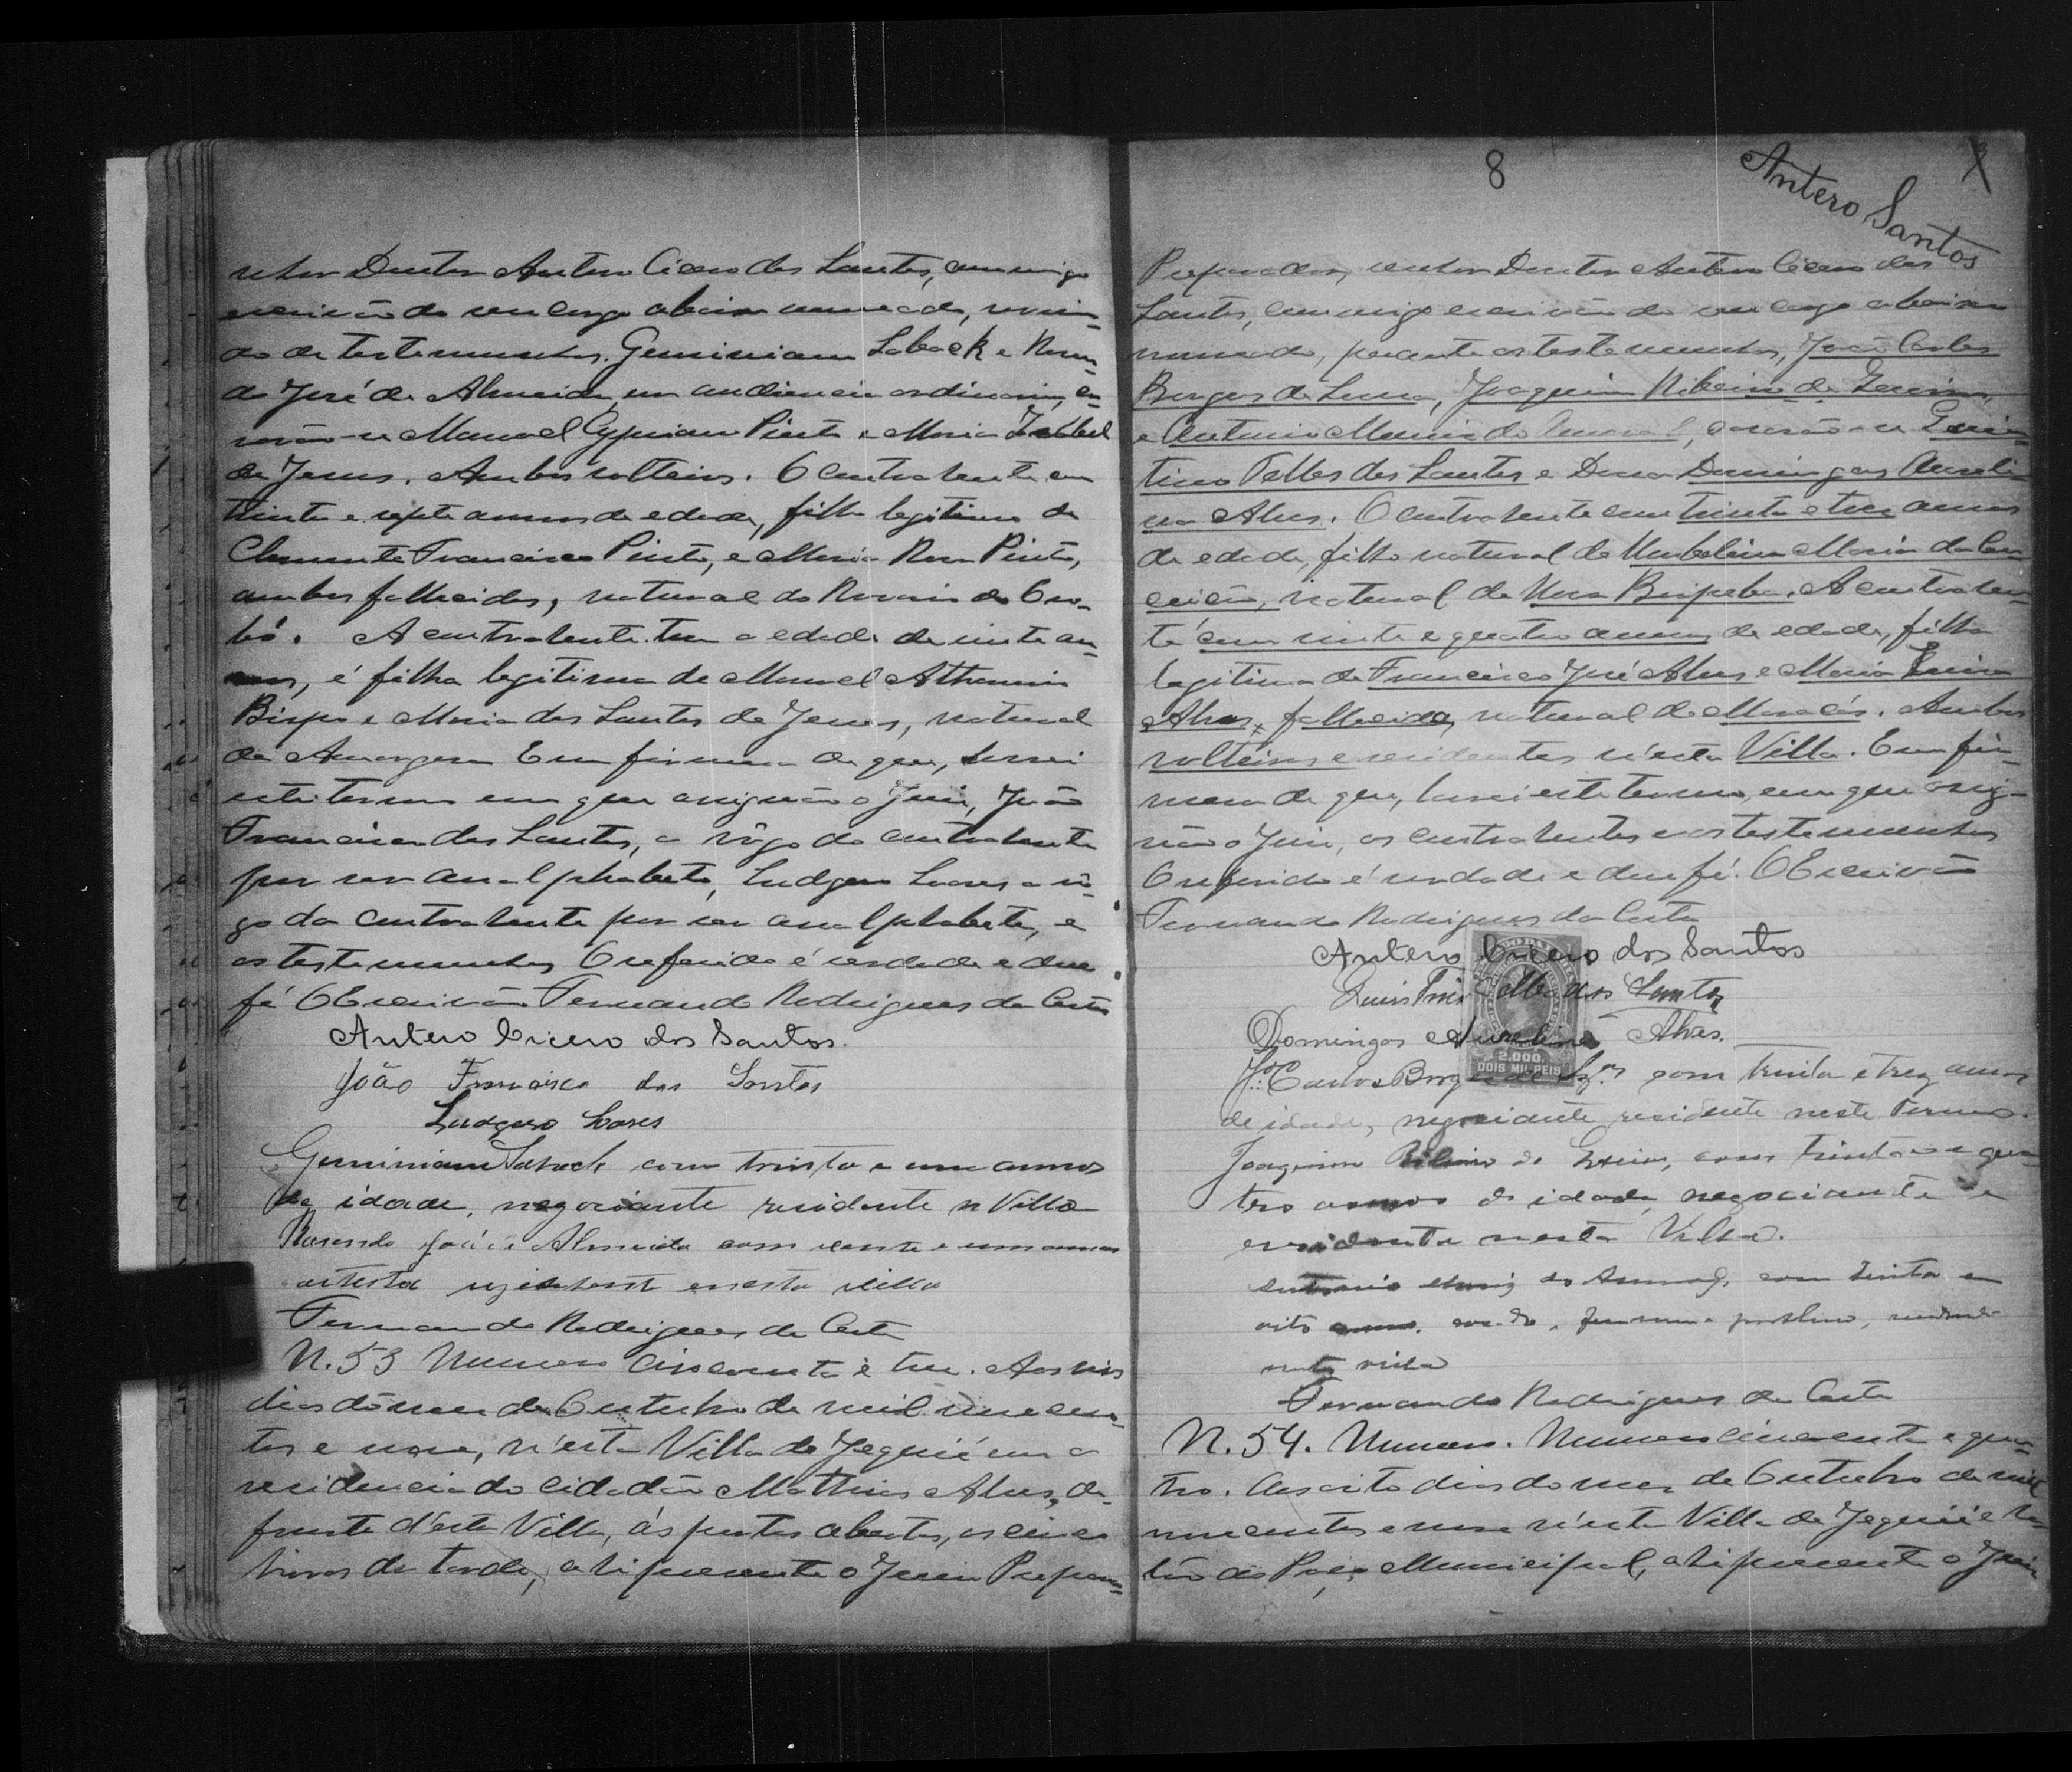 nhor Doutor Antero Cicero dos Santos, commigo
escrivão do seu cargo abaixo nomeado, servin-
do de testemunhas, Geminiano Saback e Rosen-
do José de Almeida, em audiencia ordinaria, ca-
sarão-se Manoel Cypriano Pinto e Maria Izabel
de Jesus. Ambos solteiros. O contrahente com
trinta e sete annos de edade, filho legitimo de
Clemente Francisco Pinto, e Maria Rosa Pinto,
ambos fallecidos, natural do Rosario do Oro-
bó. A contrahente tem a edade de vinte an-
nos, é filha legitima de Manoel Athanasio
Bispo e Maria dos Santos de Jesus, natural
de Amargosa Em firmeza de que, lavrei
este termo em que assignão o Juiz, João
Francisco dos Santos, a rôgo do contrahente
por ser analphabeto, Ludgero Soares a rô-
go da contrahente por ser analphabeta, e
as testemunhas O referido é verdade e dou
fé O Escrivão Fernando Rodrigues da Costa
Antero Cicero dos Santos.
João Francisco dos Santos
Ludgero Soares
Geminiano Saback com trinta e um annos
de idade, negociante residente n Villa
Rosendo José de Almeida com e um annos
artista nesta villa
Fernando Rodrigues da Costa
N. 53 Numero cincoenta e tres. Aos seis
dias do mez de Outubro de mil novecen-
tos e nove, n'esta Villa de Jequié em a
residencia do cidadão Mathias Alves, de-
fronte d'esta Villa, ás portas abertas, as cinco
horas da tarde, ahi presente o Juiz Prepara-
8
Antero Santos
Preparador, senhor Doutor Antero Cicero dos
Santos, commigo escrivão do seu cargo abaixo
nomeado, perante as testemunhas, João Carlos
Borges de Souza, Joaquim Ribeiro de
e Antonio Muniz do Amaral, casarão-se
Telles dos Santos e Dona Domingas Aureli-
na Alves. O contrahente com trinta e tres annos
de edade, filho natural de Umbelina Maria da Con-
ceicão, natural de Nova Boipeba. A contrahen-
te com vinte e quatro annos de edade, filha
legitima de Francisco José Alves e Maria Luiza
Alves, fallecida, natural de Maracás. Ambos
solteiros e residentes n'esta Villa. Em fir-
meza de que, lavrei este termo, em que assig-
não o Juiz, os contrahentes e as testemunhas
O referido é verdade e dou fé. O Escrivão
Fernando Rodrigues da Costa
Antero Cicero dos Santos
Telles dos Santos
Domingas Aurelina Alves.
2.000
DOIS MIL REIS
J. Carlos Borges de com trinta e trez annos
de idade, negociante residente neste Termo.
Joaquim Ribeiro de com trinta e qua-
tro annos de idade negociante e
residente nesta Villa.
Antonio Muniz do Amaral, com trinta e
oito annos,
nesta villa
Fernando Rodrigues da Costa
N. 54. Numero. Numero cincoenta e qua-
tro. Aos oito dias do mez de Outubro de mil
novecentos e nove n'esta Villa de Jequié e Sa-
lão do Paço Municipal, ahi presente o Juiz